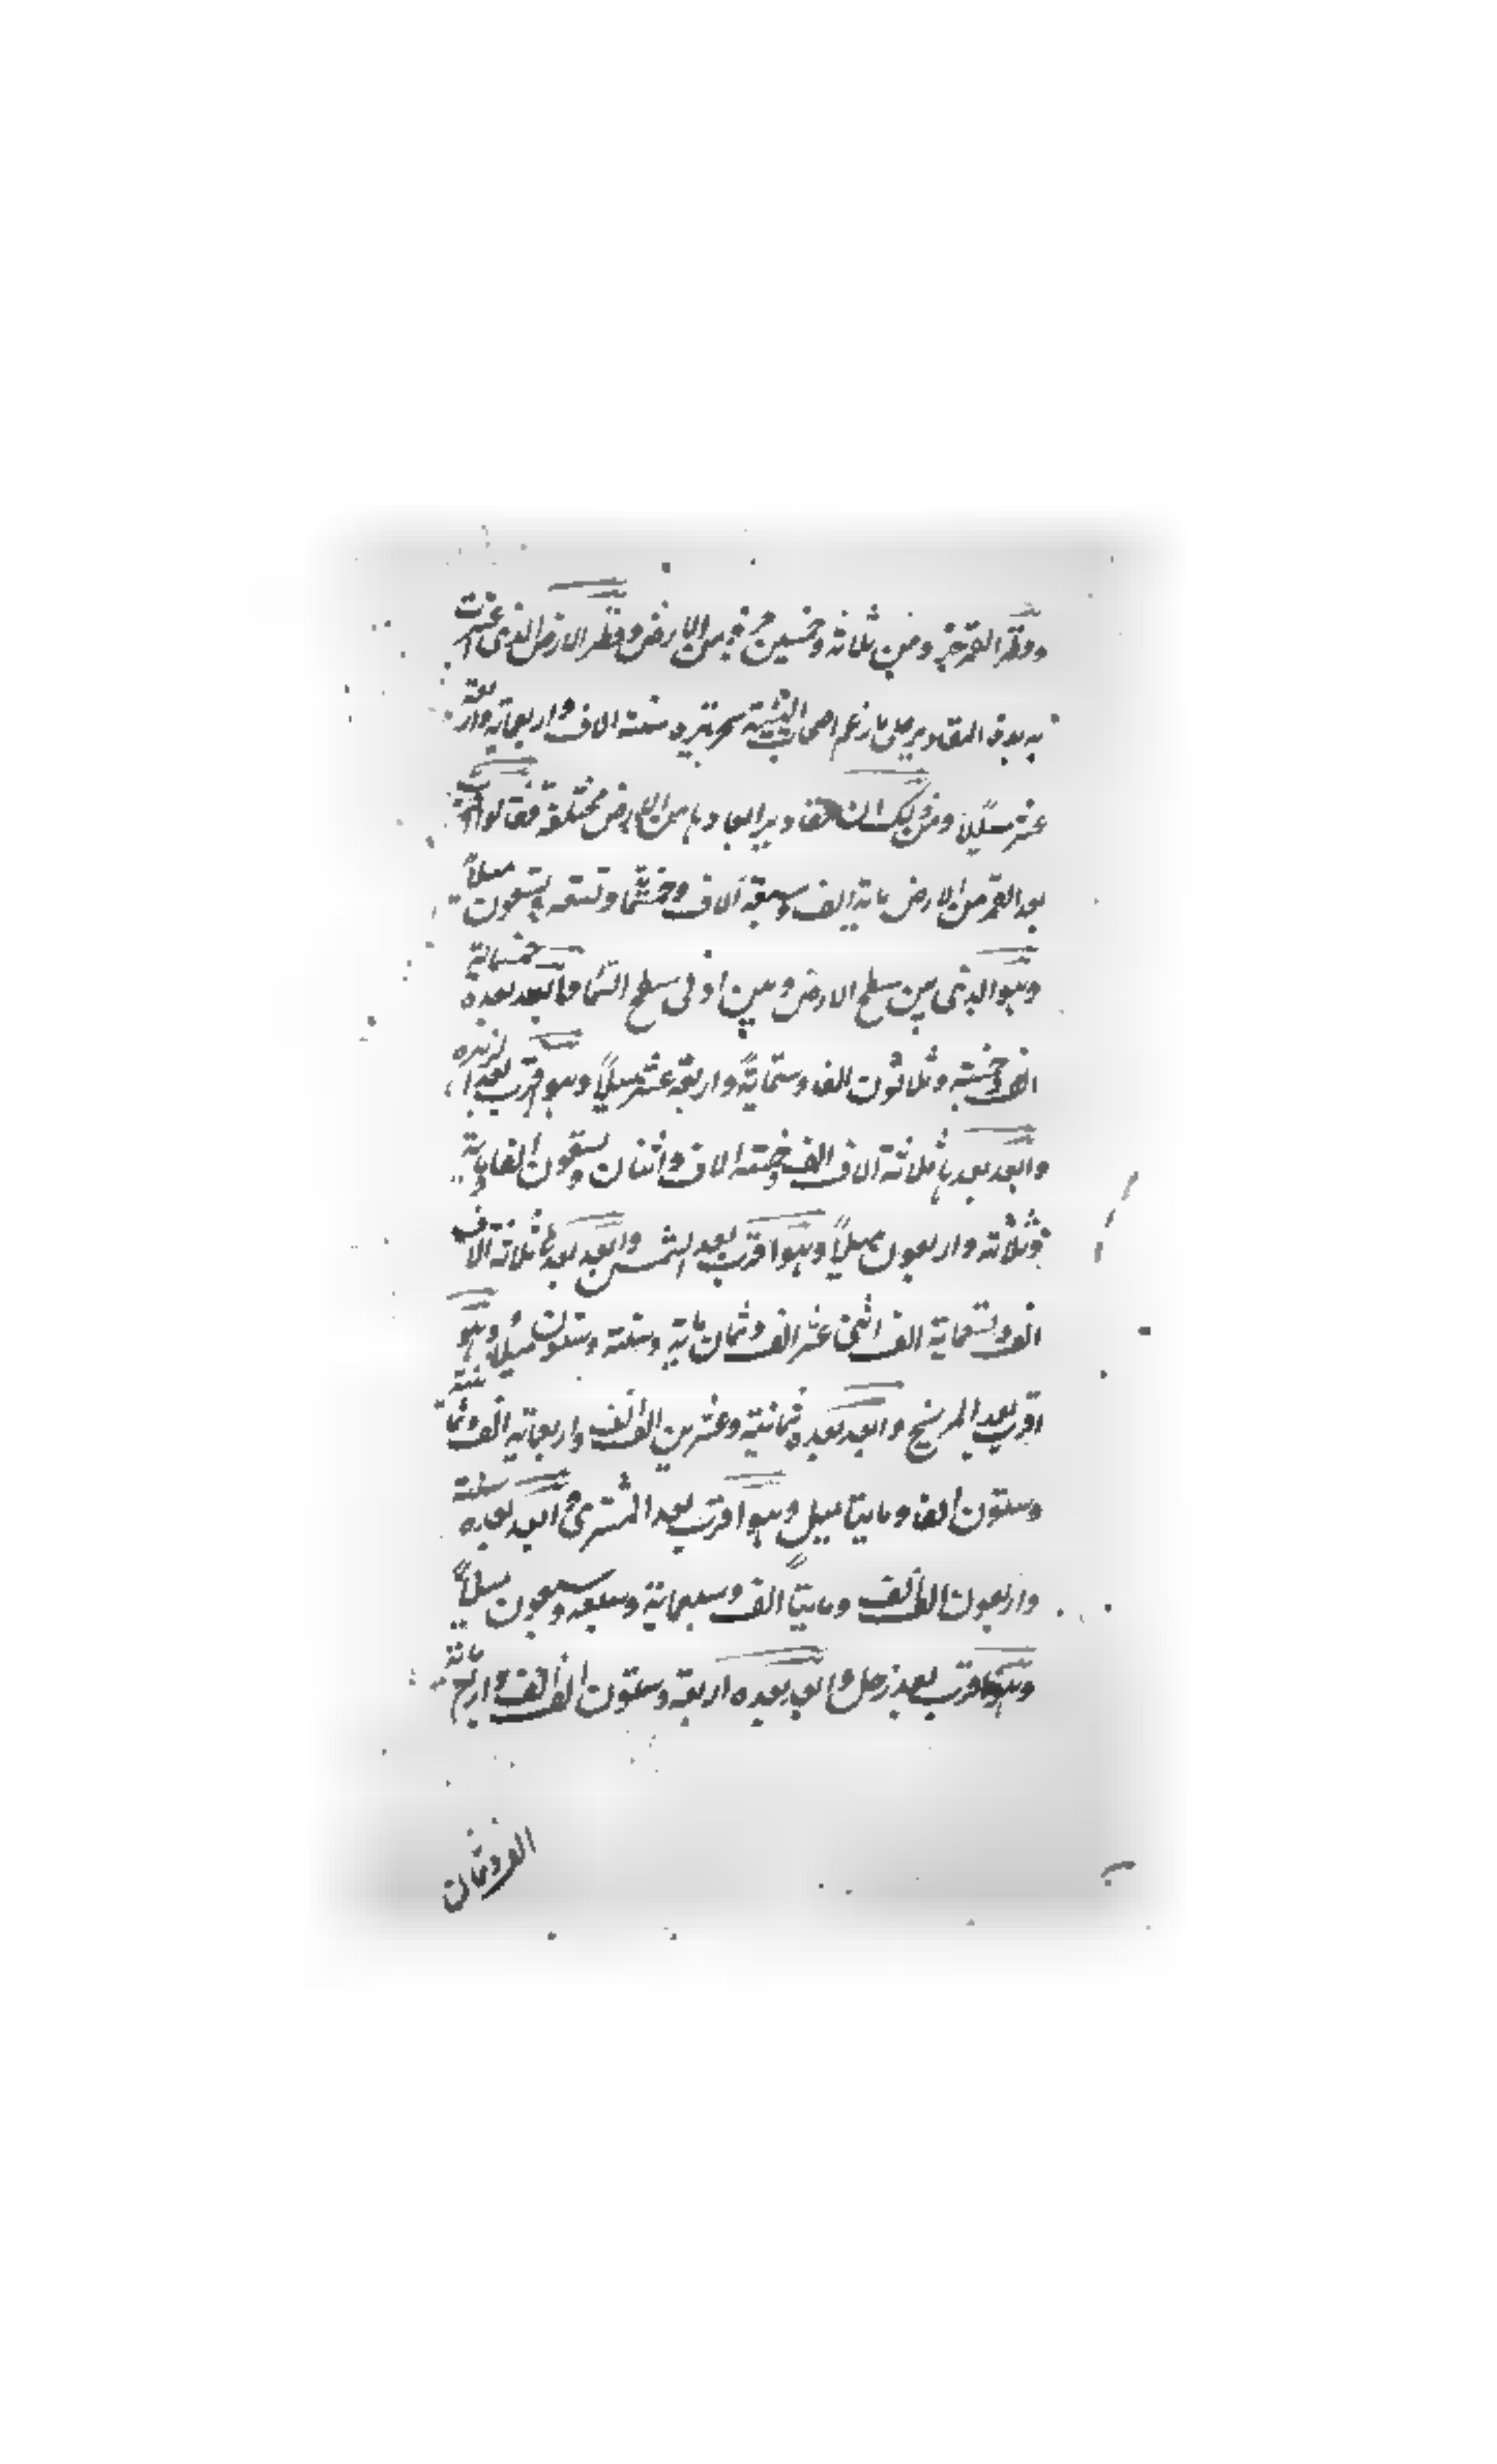 وقطر القمر جزء من ثلاثة وخمسين جزء من الارض وقطر الارض الذى اعتبرت
به هذه المقادير على ما زعم اصحاب الهيئة ستة الاف واربعماية واربعة
عشر ميلاً ومن ذلك ان مقادير ابعادها من الارض مختلفة فقالوا اقرب
بعد القمر من الارض ماية الف وسبعة آلاف وخمسماية وتسعة وتسعون ميلاً
وهو الذى بين سطح الارض وبين ادنى سطح السماء وابعد بعده خمسماية
الف وخمسة وثلاثون الفا وستماية واربعة عشر ميلاً وهو اقرب بعد الزهرة
وابعد بعدها ثلاثة الاف الف وخمسة الاف واثنان وتسعون الفا وماية
وثلاثة واربعون ميلاً وهو اقرب بعد الشمس وابعد بعدها ثلاثة الاف
الف وتسعماية الف اثنى عشر الف وثمان ماية وستة وستون ميلاً وهو
اقرب بعد المريخ وابعد بعده ثمانية وعشرين الف الف واربعماية الف وثمانية
وستون الفا ومايتا ميل وهو اقرب بعد المشترى وابعد بعده ستة
واربعون الف الف ومايتا الف وسبعماية وسبعة وسبعون ميلاً
وهو اقرب بعد زحل وابعد بعده اربعة وستون الف الف واربع مائة
الف وثمان